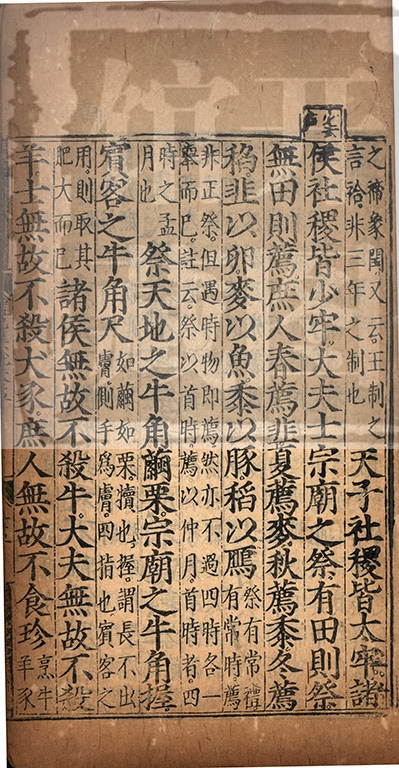 之禘象閏又云王制之
言祫非三年之制也
天子社稷皆太牢諸
侯社稷皆少牢大夫士宗廟之祭有田則祭
無田則薦庶人春薦韭夏薦麥秋薦黍冬薦
稻韭以卵麥以魚黍以豚稻以鴈
祭有常禮
有常時薦
非正祭但遇時物即薦然亦不過四時各一
舉而已註云祭以首時薦以仲月首時者四
時之孟
月也
祭天地之牛角繭栗宗廟之牛角握
賓客之牛角尺
如繭如栗犢也握謂長不出
膚側手爲膚四指也賓客之
用則取其
肥大而已
諸侯無故不殺牛大夫無故不殺
羊士無故不殺犬豕庶人無故不食珍
烹牛
羊豕